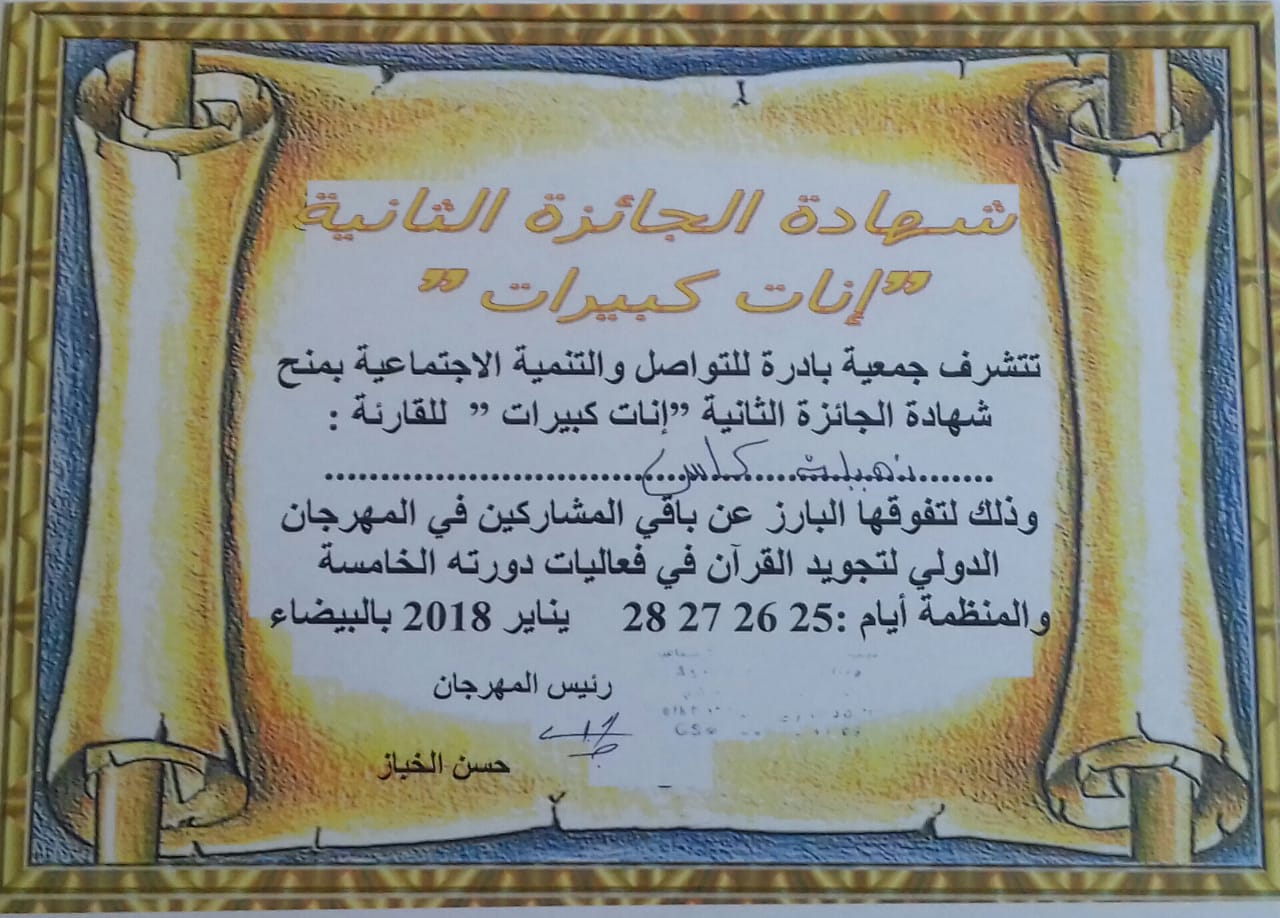 شهادة الجائزة الثانية
”إنات كبيرات ”
تتشرف جمعية بادرة للتواصل والتنمية الاجتماعية بمنح
شهادة الجائزة الثانية ”إنات كبيرات ” للقارئة :
وذلك لتفوقها البارز عن باقي المشاركين في المهرجان
الدولي لتجويد القرآن في فعاليات دورته الخامسة
والمنظمة أيام :25 26 27 28 يناير 2018 بالبيضاء
رئيس المهرجان
حسن الخباز